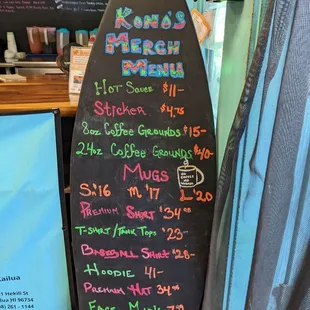 KONO'S
MERCH
MENU
HOT SAUCE $11-
STICKER $4.75
8oz COFFEE GROUNDS $15-
24oz COFFEE GROUNDS $40-
MUGS
S $16 M $17 L $20
PREMIUM SHIRT $34
T-SHIRT/TANK TOPS $23-
BASEBALL SHIRT $28-
HOODIE 41-
PREMIUM HAT 34
ailua
Hekili St
HI 96734
261-1144